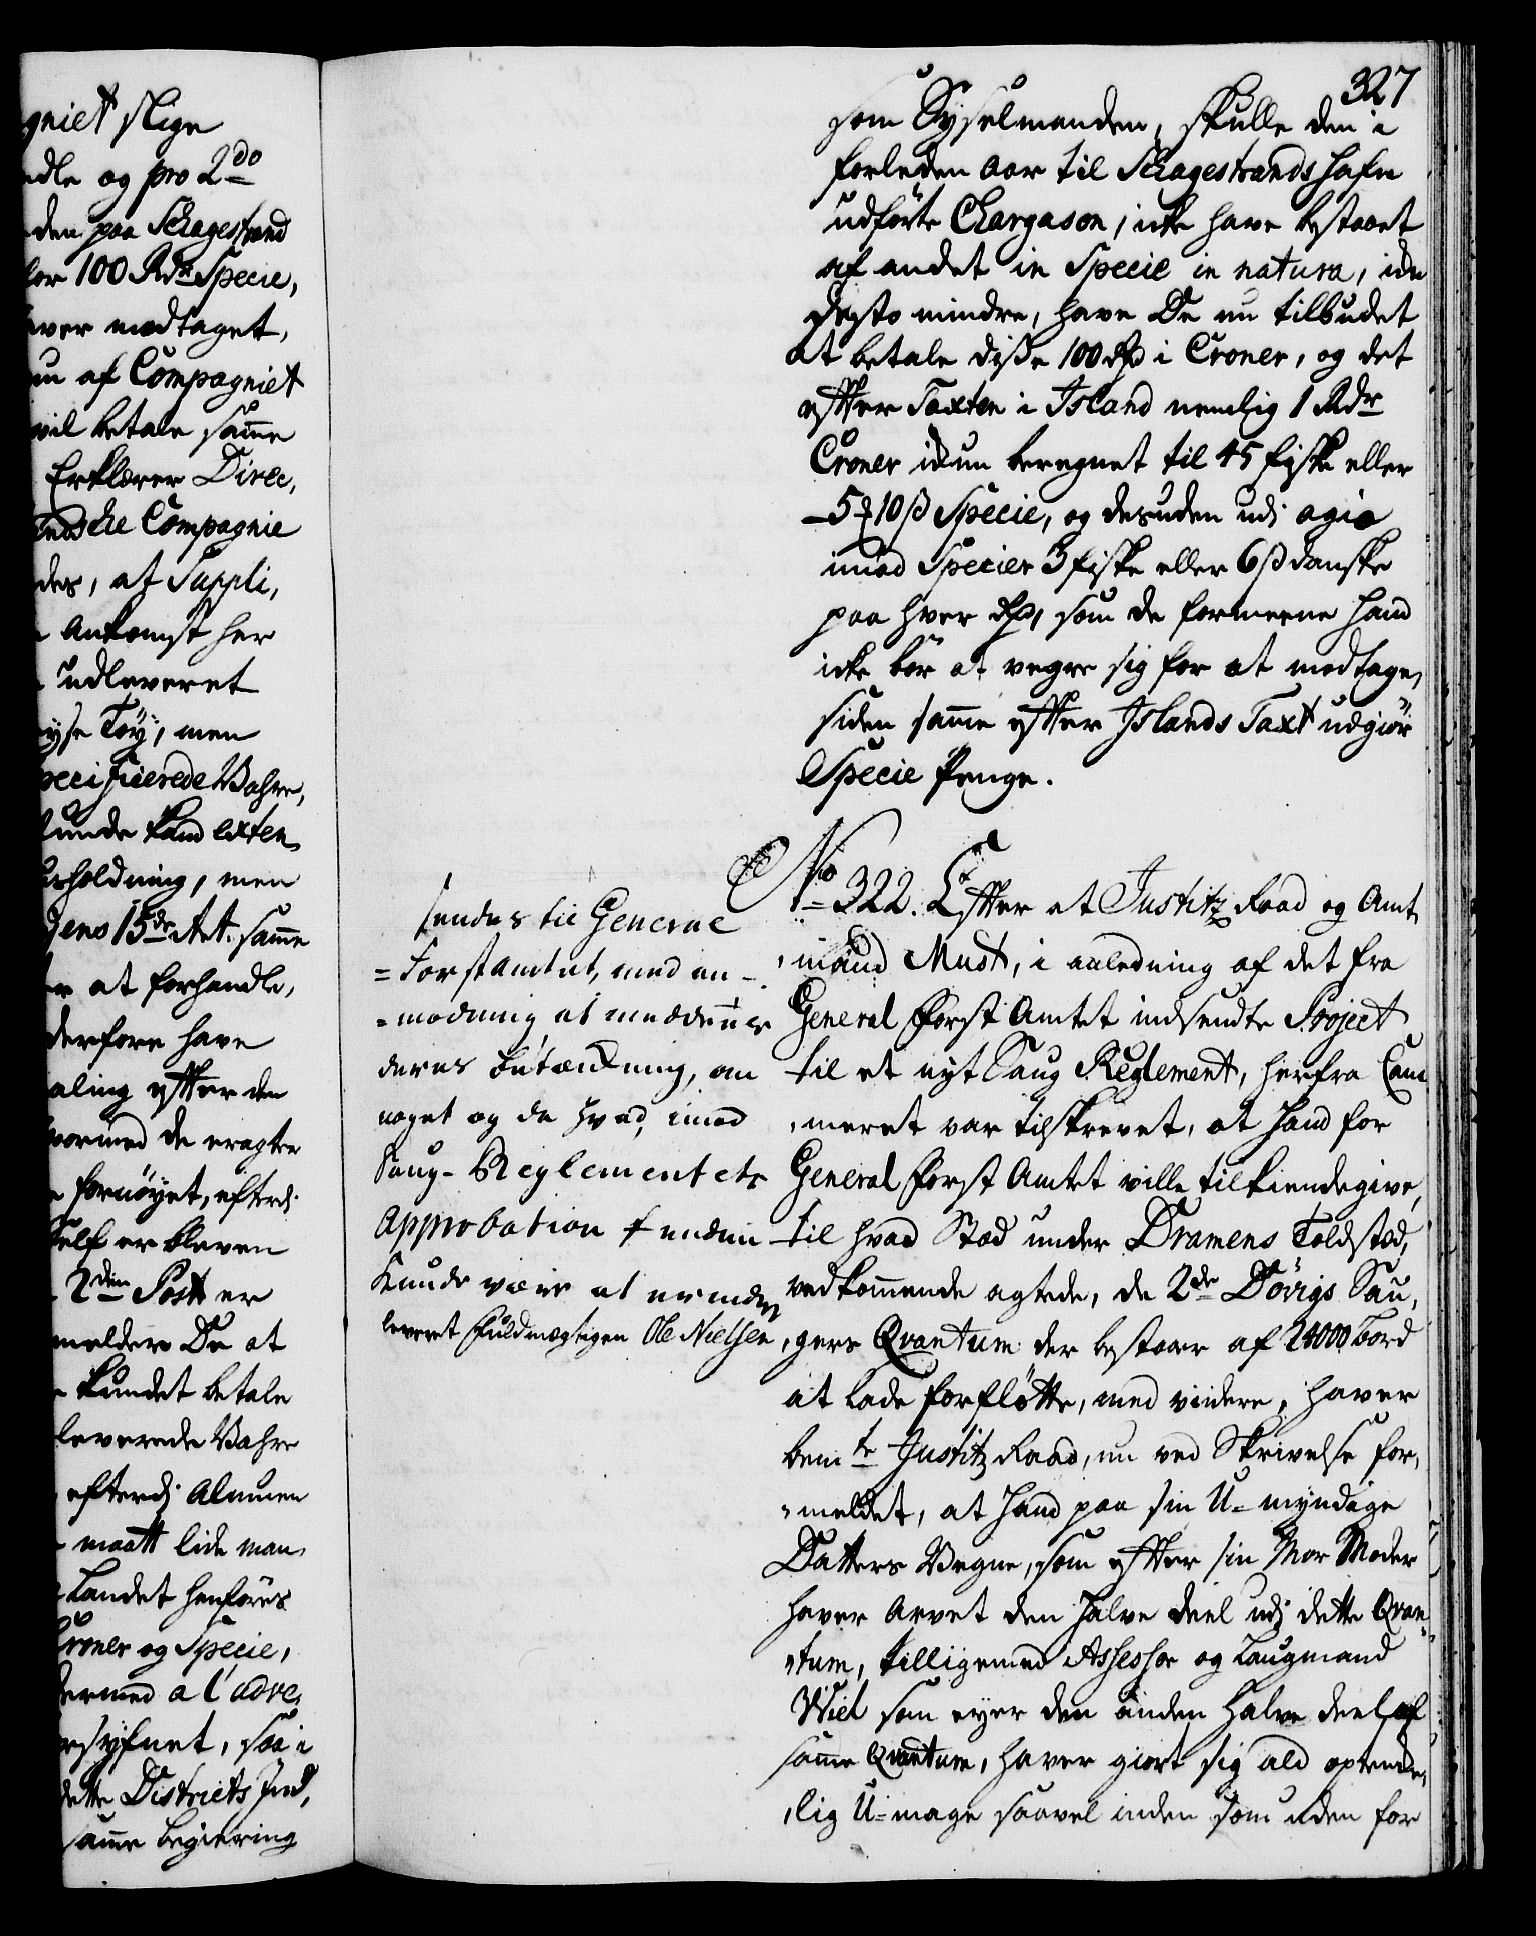 gniet slige
dle og pro 2do
den paa Schagestrand
for 100 Rdr Specie,
wer modtaget,
nu af Compagniet
vil betale samme
Erklærer Direc,
andske Compagnie
des, at Suppli,
Ankomst her
udleveret
yse Töy, men
pecificerede Vahre,
unde kand exten,
rholdning, men
dens 15de Art. samme
er at forhandle,
derfore have
aling efter den
vormed de eragter
fornöyet, efterdi
self er bleven
2den Post er
melder De at
kundet betale
leverede Vahre
efterdi Almuen
maatt lide man,
Landet henföres
Croner og Specie,
dermed a l'adve,
saa i
dette Districts Ind,
samme begiering
327
som Sysselmanden, skulle den i
forleden Aar til Schagestrands Hafn
udförte Chargason, icke have bestaaet
af andet in Specie in natura, icke
desto mindre, have De nu tilbudet
at betale disse 100 Rdr i Croner, og det
efter Taxten i Island nemlig 1 Rdr
Croner ickun beregnet til 45 fiske eller
5 ₰ 10 ß Specie, og desuden udi agio
imod Specier 3 fiske eller 6 ß danske
paa hver Rdr, som de formeene Hand
icke bör at vegre sig for at modtage,
siden samme efter Islands Taxt udgiör
Specie Penge.
No 322. Efter at Justitz Raad og Amt,
mand Must, i anledning af det fra
General Forst Amtet indsendte Project
til et nyt Saug Reglement, herfra Cam
meret var tilskrevet, at Hand for
General Forst Amtet ville tilkiendegive,
til hvad Stæd under Dramens Toldstæd,
vedkommende agtede, de 2de Dövigs Sau,
gers Qvantum der bestaaer af 24000 Bord
at lade forflötte, med videre, haver
bemte Justitz Raad, nu ved Skrivelse for,
meldet, at Hand paa sin U-myndige
Datters Vegne, som efter sin Mor Moder
haver Arvet den halve deel udi dette Qvan
tum, tilligemed Assessor og Laugmand
Wiel som eyer den anden halve deel af
samme Qvantum, haver giort sig ald optænke,
lig U-mage saavel inden som uden for
sendes til General
Forst Amtet, med an-
modning at meddeele
deres Betænckning, om
noget og da hvad, imod
Saug-Reglementets
Approbation f
kunde være at erindre
leveret Fuldmægtigen Ole Nielsen